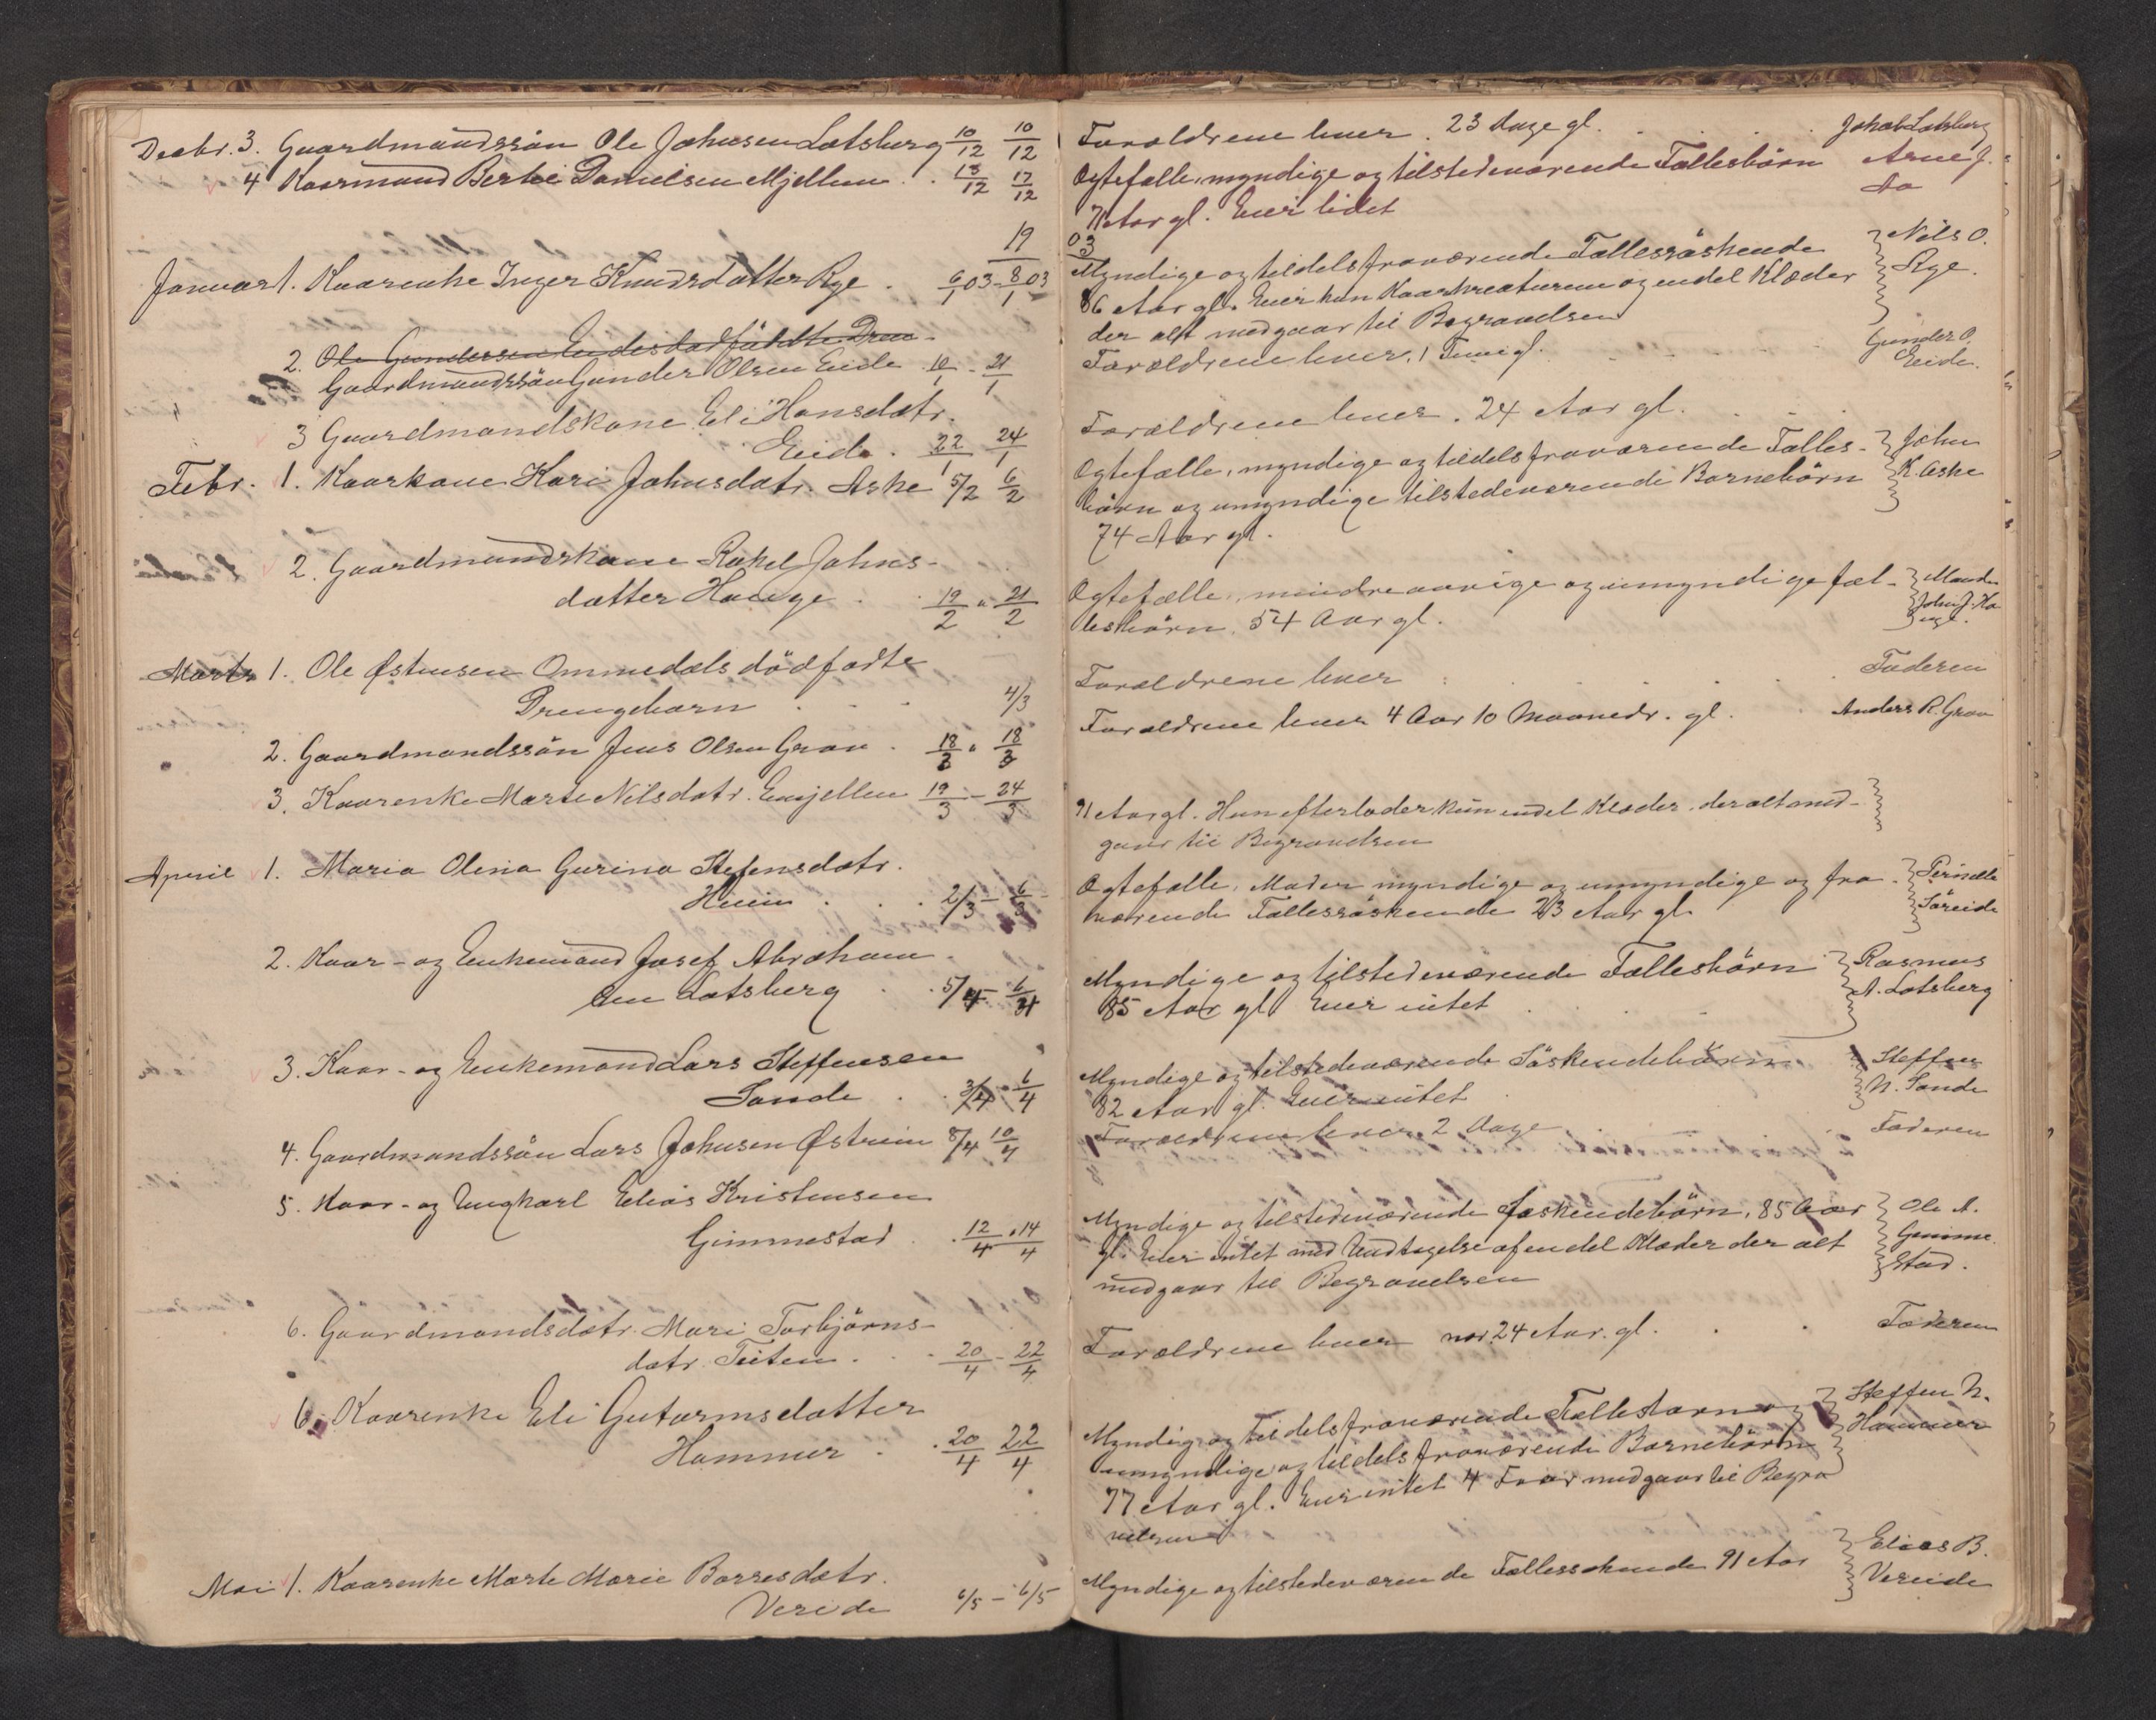 Decbr. 3. Gaardmandssön Ole Johnsen Lotsberg 10/12 10/12
4 Kaarmand Bertei Danielsen Mjellem . . 13/12 17/12
19
Januar 1. Kaarenke Inger Knudsdatter Rye . 6/1 03 - 8/1 03
2. Ole Gundersen Eides dødfödte Dren-
Gaardmandssön Gunder Olsen Eide 10/1 - 21/1
3 Gaardmandskone Eli Hansdatr.
Eide . 22/1 24/1
Febr. 1. Kaarkone Kari Johnsdatr. Aske 5/2 6/2
2. Gaardmandskone Rakel Johns-
datter Hauge . . 19/2 " 21/2
Marts 1. Ole Østensen Ommedals dödfødte
Drengebarn . . . 4/3
2. Gaardmandssön Jens Olsen Grov . 18/3 " 18/3
3. Kaarenke Marte Nilsdatr. Emjellem 19/3 - 24/3
April 1. Maria Olina Gurina Stefensdatr.
. . . 2/3 - 6/3
2. Kaar- og Enkemand Josef Abraham-
sen Lotsberg . . 5/4 - 6/4
3. Kaar- og Enkemand Lars Steffensen
Sande . . 3/4 . 6/4
4. Gaardmandssön Lars Johnsen Østrem 8/4 10/4
5. Kaar- og Ungkarl Elias Kristensen
Gimmestad . . 12/4 . 14/4
6. Gaardmandsdatr. Mari Torbjörns-
datr. Teiten . . . 20/4 - 22/4
6. Kaarenke Eli Gutormsdatter
Hammer . . 20/4 22/4
Mai 1. Kaarenke Marte Marie Borresdatr.
Vereide 6/5 - 6/5
Forældrene lever . 23 Dage gl. . . . Jakob Lotsberg
Ægtefælle, myndige og tilstedeværende Fællesbörn Arne J.
71 Aar gl. Eier lidet Aa
03
Myndige og tildels fraværende Fællessöskende Nils O.
86 Aar gl. Eier kun Kaarkreaturene og endel Klæder Rye.
der alt medgaar til Begravelsen
Forældrene lever. 1 Time gl. Gunder O.
Eide.
Forældrene lever . 24 Aar gl. . .
Ægtefælle, myndige og tildels fraværende Fælles- John
börn og umyndige tilstedeværende Barnebörn K. Aske
74 Aar gl.
Ægtefælle, mindreaarige og umyndige fæl- Manden
lesbörn. 54 Aar gl. John J. Ha
uge.
Forældrene lever . . . . . Faderen
Forældrene lever 4 Aar 10 Maaneder. gl. . Anders R. Grov
91 Aar gl. Hun efterlader kun endel Klæder, der alt med-
gaar til Begravelsen
Ægtefælle, Moder myndige og umyndige og fra- Pernelle
værende Fællessöskende 23 Aar gl. Söreide
Myndige og tilstedeværende Fællesbörn Rasmus
85 Aar gl Eier intet . . . A. Lotsberg
Myndige og tilstedeværende Söskendebörn Steffen
82 Aar gl. Eier intet . N. Sande
Forældrene lever 2 Dage . . Faderen
Myndige og tilstedeværende Söskendebörn, 85 Aar Ole A.
gl. Eier intet med Undtagelse af endel Klæder der alt Gimme-
medgaar til Begravelsen stad.
Forældrene lever var 24 Aar. gl. . . Faderen
Myndige og tildels fraværende Fællesbørn og Steffen N.
umyndige og tildels fraværende Barnebörn Hammer
77 Aar gl. Eier intet 4 Faar medgaar til Begra
velsen
Myndige og tilstedeværende Fællessøskende 91 Aar Elias B.
Vereide